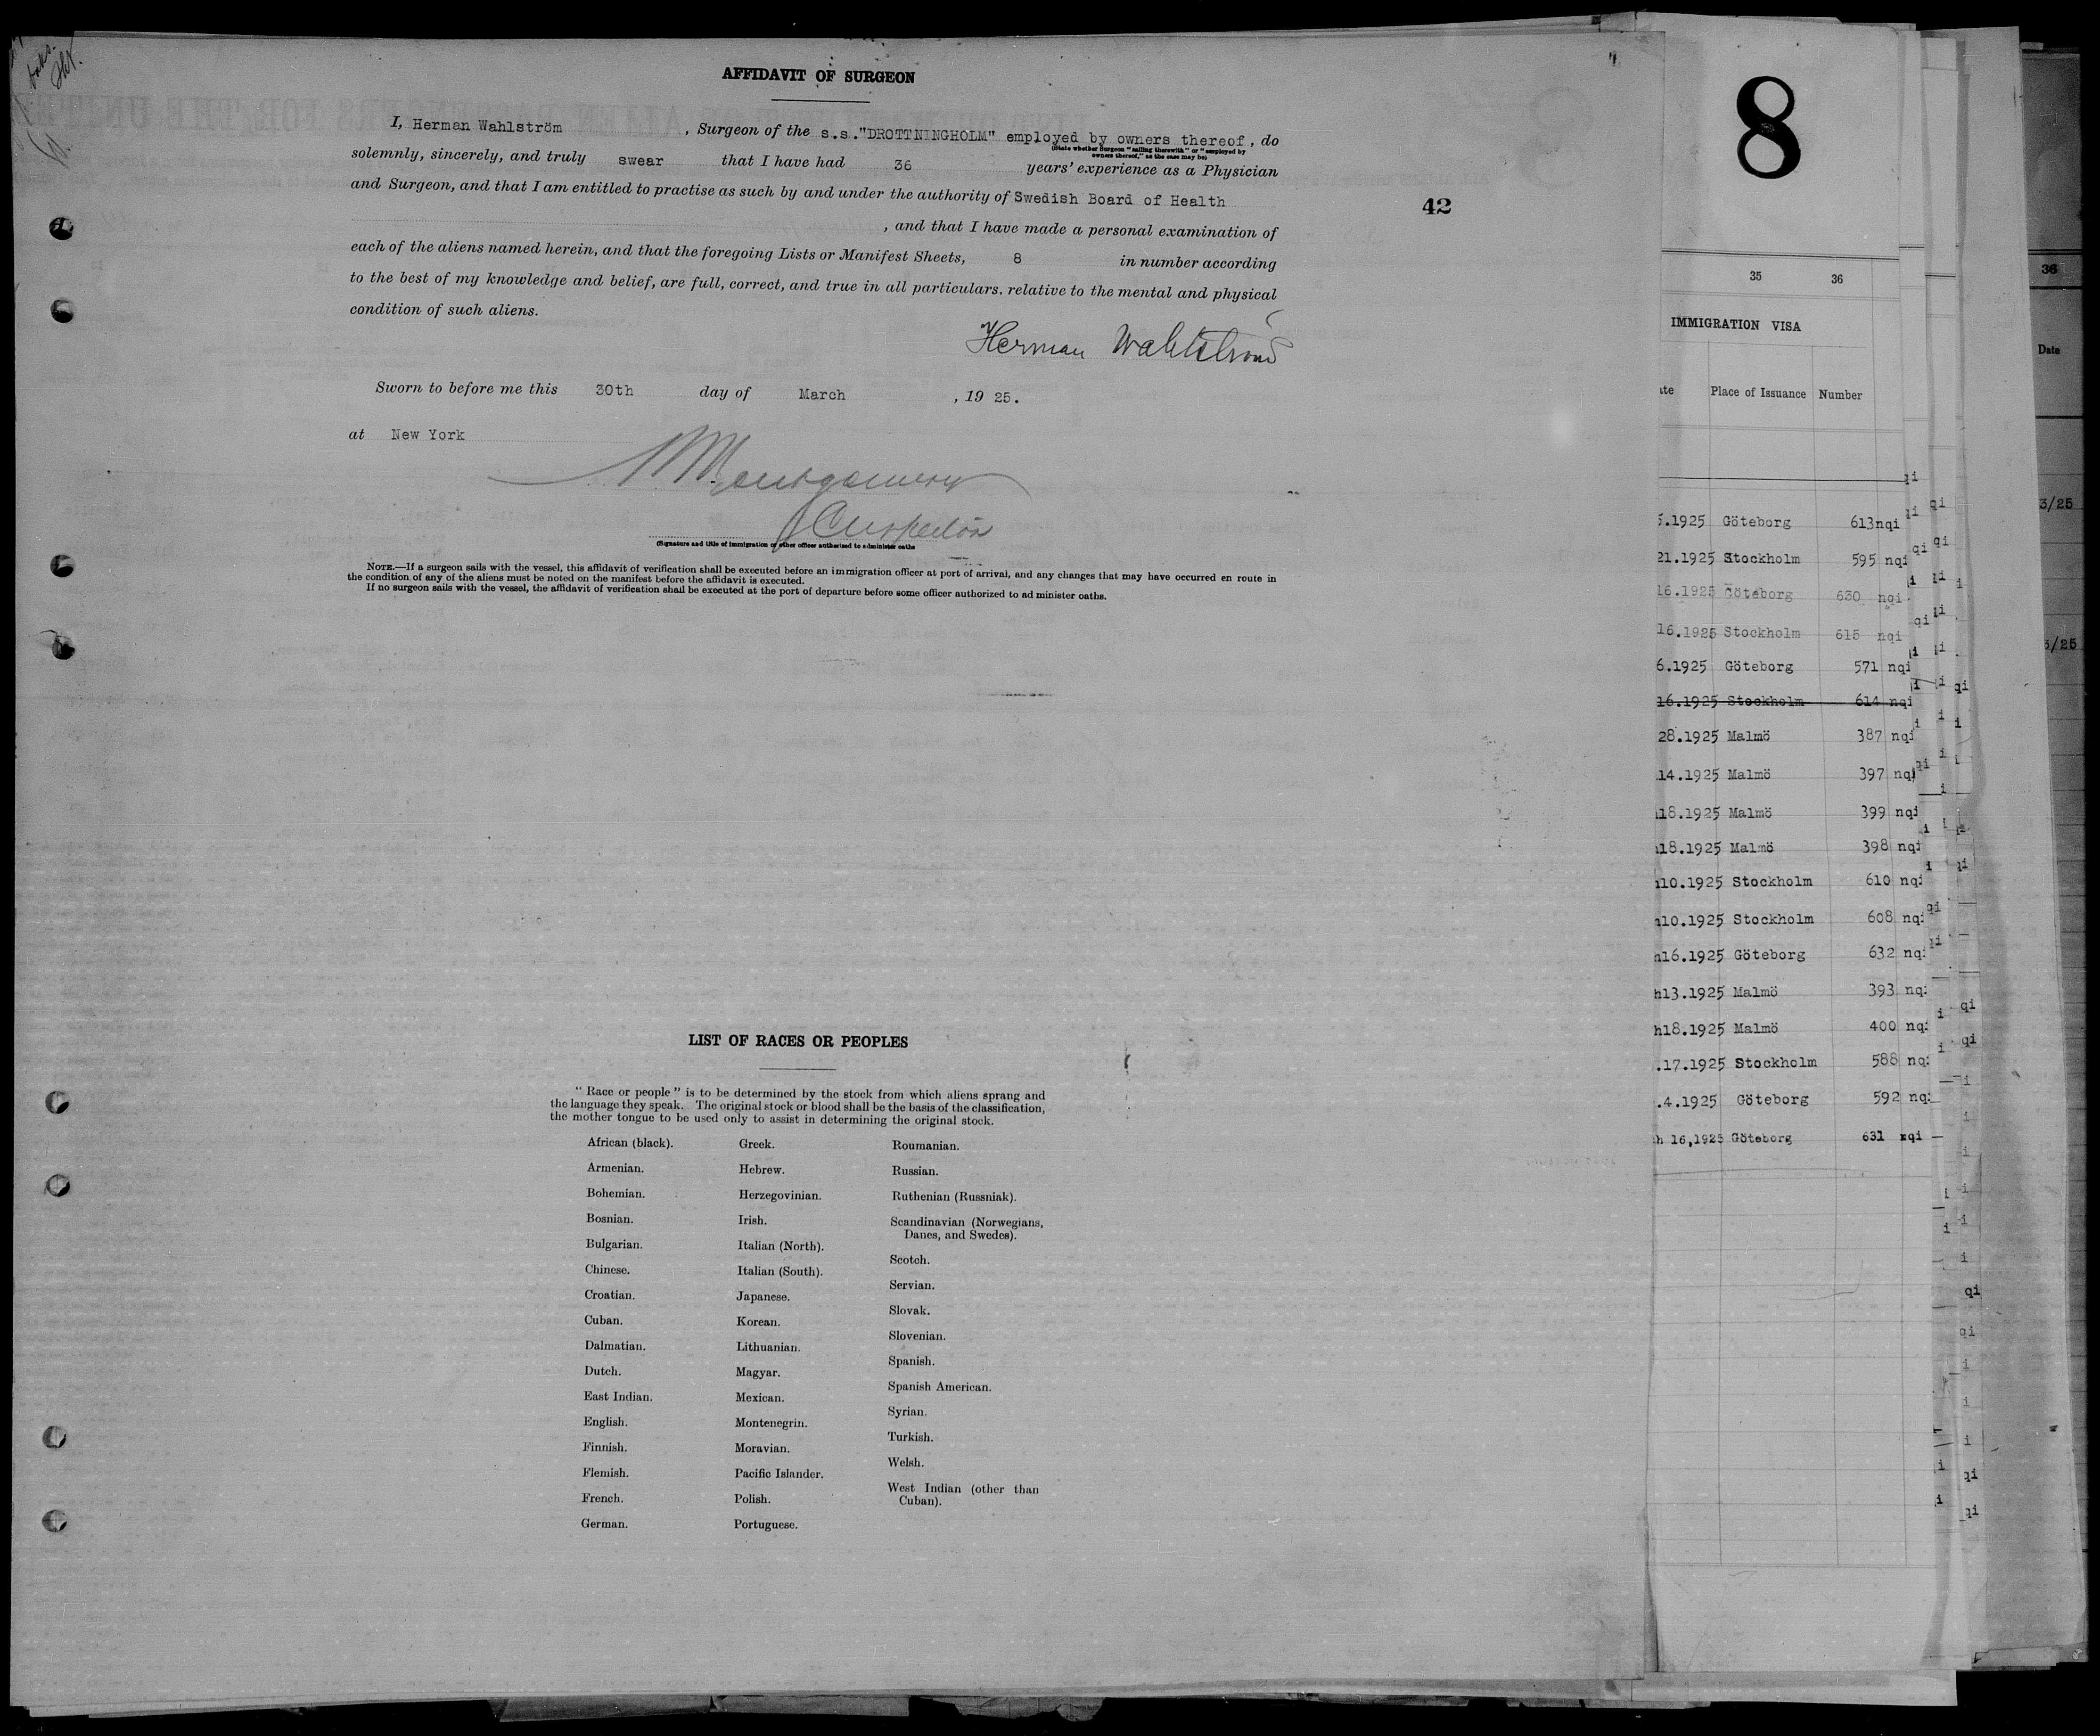 AFFIDAVIT OF SURGEON
I, Herman Wahlström, Surgeon of the s.s."DROTTNINGHOLM" employed by owners thereof, do
(State whether Surgeon "sailing therewith" or "employed by
owners thereof," as the case may be)
solemnly, sincerely, and truly swear that I have had 36 years' experience as a Physician
and Surgeon, and that I am entitled to practise as such by and under the authority of Swedish Board of Health
, and that I have made a personal examination of
each of the aliens named herein, and that the foregoing Lists or Manifest Sheets, 8 in number according
to the best of my knowledge and belief, are full, correct, and true in all particulars. relative to the mental and physical
condition of such aliens.
Herman Wahlström
Sworn to before me this 30th day of March, 19 25.
at New York
Montgomery
Inspector
(Signature and title of immigration or other officer authorised to administer oaths
NOTE.—If a surgeon sails with the vessel, this affidavit of verification shall be executed before an immigration officer at port of arrival, and any changes that may have occurred en route in
the condition of any of the aliens must be noted on the manifest before the affidavit is executed.
If no surgeon sails with the vessel, the affidavit of verification shall be executed at the port of departure before some officer authorized to ad minister oaths.
42
LIST OF RACES OR PEOPLES
"Race or people" is to be determined by the stock from which aliens sprang and
the language they speak. The original stock or blood shall be the basis of the classification,
the mother tongue to be used only to assist in determining the original stock.
African (black).
Armenian.
Bohemian.
Bosnian.
Bulgarian.
Chinese.
Croatian.
Cuban.
Dalmatian.
Dutch.
East Indian.
English.
Finnish.
Flemish.
French.
German.
Greek.
Hebrew.
Herzegovinian.
Irish.
Italian (North).
Italian (South).
Japanese.
Korean.
Lithuanian.
Magyar.
Mexican.
Montenegrin.
Moravian.
Pacific Islander.
Polish.
Portuguese.
Roumanian.
Russian.
Ruthenian (Russniak).
Scandinavian (Norwegians,
Danes, and Swedes).
Scotch.
Servian.
Slovak.
Slovenian.
Spanish.
Spanish American.
Syrian.
Turkish.
Welsh.
West Indian (other than
Cuban).
8
35 36
IMMIGRATION VISA
Place of Issuance Number
5.1925 Göteborg 613nqi
21.1925 Stockholm 595 nqi
16.1925 Göteborg 630 nqi
16.1925 Stockholm 615 nqi
6.1925 Göteborg 571 nqi
16.1925 Stockholm 614 nqi
28.1925 Malmö 387 nqi
14.1925 Malmö 397 nqi
18.1925 Malmö 399 nqi
18.1925 Malmö 398 nqi
10.1925 Stockholm 610 nqi
10.1925 Stockholm 608 nqi
16.1925 Göteborg 632 nqi
h13.1925 Malmö 393 nqi
h18.1925 Malmö 400 nqi
.17.1925 Stockholm 588 nqi
.4.1925 Göteborg 592 nqi
h 16,1925 Göteborg 631 nqi
36
Date
3/25
3/25